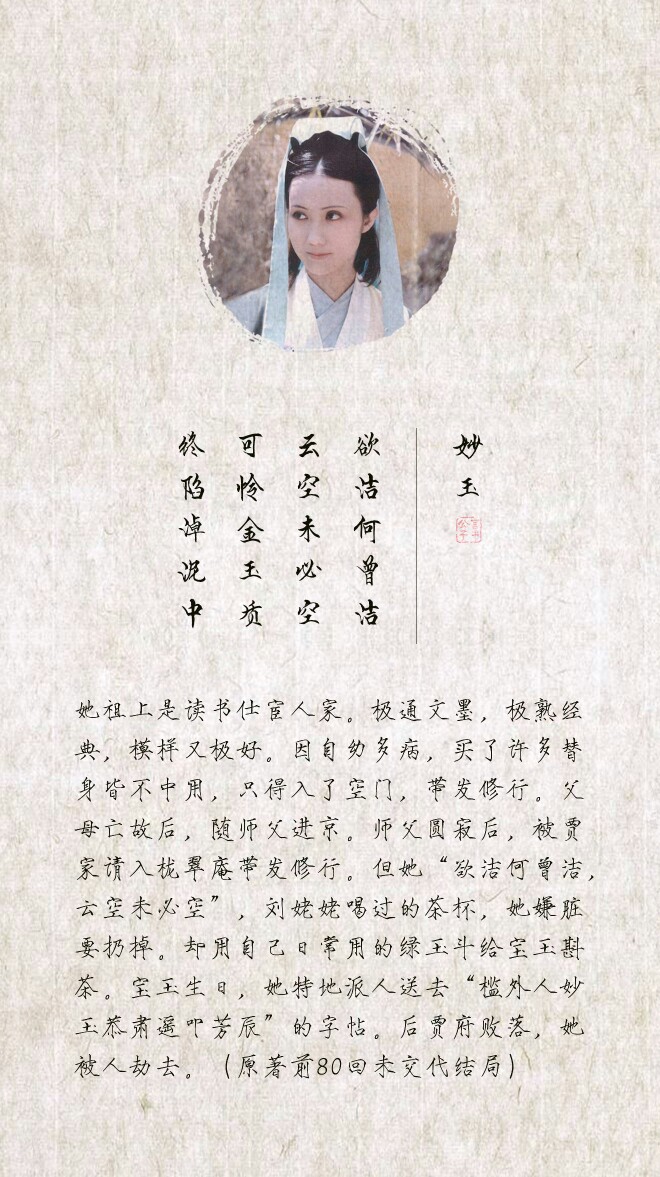 妙玉
欲洁何曾洁
云空未必空
可怜金玉质
终陷淖泥中
她祖上是读书仕宦人家。极通文墨，极熟经
典，模样又极好。因自幼多病，买了许多替
身皆不中用，只得入了空门，带发修行。父
母亡故后，随师父进京。师父圆寂后，被贾
家请入栊翠庵带发修行。但她“欲洁何曾洁，
云空未必空”，刘姥姥喝过的茶杯，她嫌脏
要扔掉。却用自己日常用的绿玉斗给宝玉斟
茶。宝玉生日，她特地派人送去“槛外人妙
玉恭肃遥叩芳辰”的字帖。后贾府败落，她
被人劫去。（原著前80回未交代结局）